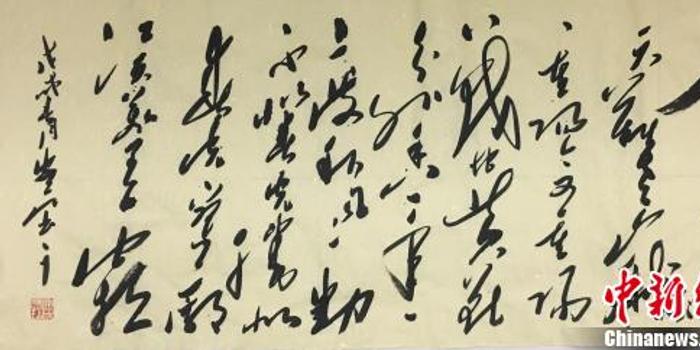 天难老岁
重阳今又重阳
战地黄花
分外香一年一
度秋风劲
不似春光胜似
春光寥廓
江天万里霜
戊戌
中新
Chinanews